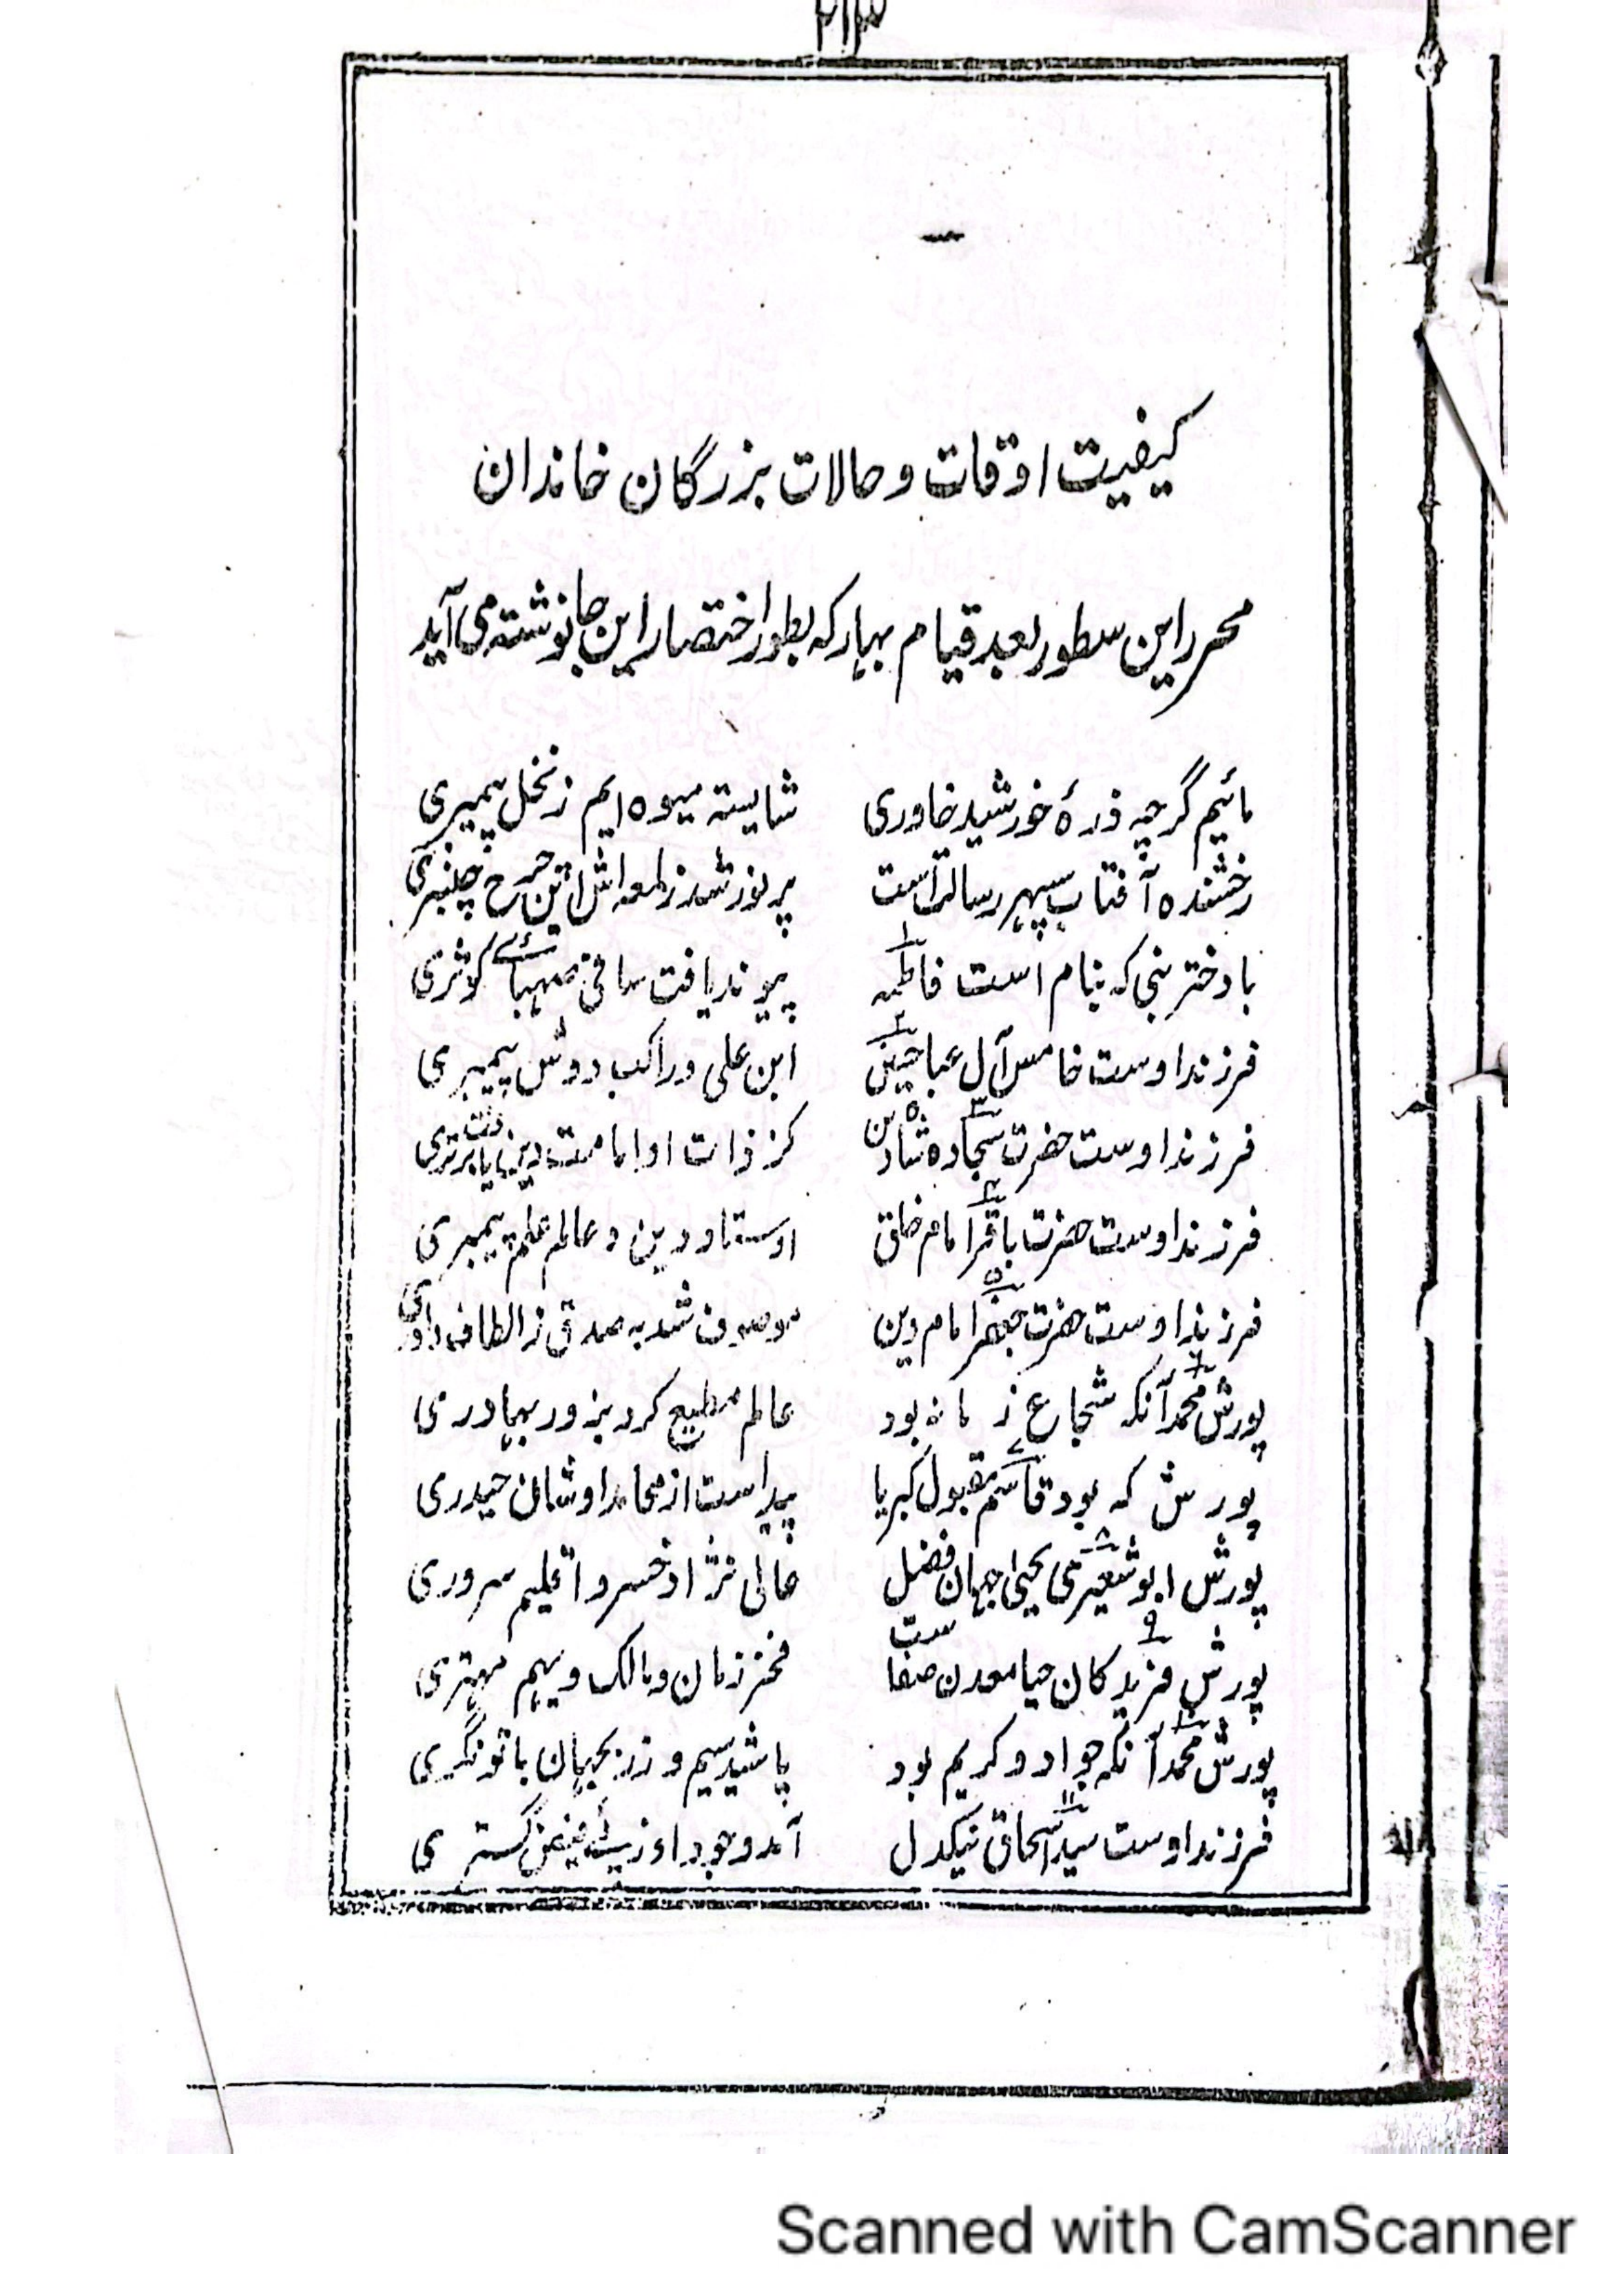 ۲۱۳
کیفیت اوقات و حالات بزرگان خاندان
محرر این سطور بعد قیام بہار کہ بطور اختصار این جا نوشتہ می آید
مائیم گرچہ ذرۂ خورشید خاوری شایستہ میوہ ایم ز نخل پیمبری
رخشندہ آفتاب سپہر رسالت است پر نور شد ز لمعہ اش این چرخ چنبری
با دختر نبی کہ بنام است فاطمہ ۱ پیوند یافت ساقئ صہبائے کوثری
فرزند اوست خامس آل عبا حسین ۲ ابن علی و راکب دوش پیمبری
فرزند اوست حضرت سجاد ۳ شاہ دین کز ذات او امامت دین یافت برتری
فرزند اوست حضرت باقر ۴ امام خلق اوستاد دین و عالم علم پیمبری
فرزند اوست حضرت جعفر ۵ امام دین موصوف شد بہ صدق ز الطاف داوری
پورش محمد ۶ آنکہ شجاع زمانہ بود عالم مطیع کرد بزور بہادری
پورش کہ بود قاسم ۷ مقبول کبریا پیداست از محامد او شان حیدری
پورش ابو شعیر ۸ یحیی جہان فضل عالی نژاد خسرو اقلیم سروری
پورش فزید ۹ کان حیا معدن صفا ست فخر زمان و مالک ویہیم مہتری
پورش محمد ۱۰ آنکہ جواد و کریم بود پاشید سیم و زر بجہان با تونگری
فرزند اوست سید اسحاق ۱۱ نیکدل آمد وجود او ز پئے فیض گستری
Scanned with CamScanner